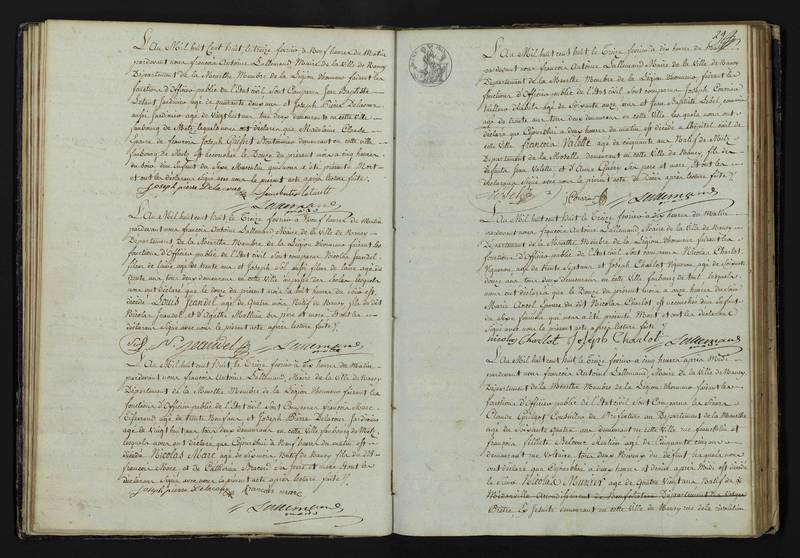 L'An Mil huit Cent huit, le treize fevrier à Neuf heures du Matin
pardevant nous françois Antoine Lallemand, Maire de la Ville de Nancy
Département de la Meurthe Membre de la Légion d'honneur faisant les
fonctions d'Officier public de l'Etat civil, Sont Comparus Jean Baptiste
Jardinier agé de quarante deux ans et Joseph Pierre Delacour
aussi Jardinier agé de Vingt huit ans tous deux demeurant en cette ville
faubourg de Metz, lesquels nous ont déclaré que Madelaine Claude
Epouse de françois Joseph demeurant en cette ville
faubourg de Metz est accouchée le Douze du présent mois à huit heures
du Soir d'un Enfant du Sexe Masculin qui nous a été présenté Mort
et ont les déclarans Signé avec nous le présent acte après lecture faite.
Joseph pierre Delacour
Lallemand
L'An Mil huit cent huit le Treize fevrier à Neuf heures du Matin
pardevant nous françois Antoine Lallemand Maire de la Ville de Nancy
Département de la Meurthe Membre de la Légion d'honneur faisant les
fonctions d'Officier public de l'Etat civil sont comparus Nicolas Jeandel
fileur de laine agé de trente ans et Joseph aussi fileur de laine agé de
trente ans tous deux demeurant en cette Ville lesquels
nous ont déclaré que le Douze du présent mois à huit heures du soir est
décédé Louis Jeandel agé de Quatre mois Natif de Nancy fils du dit
Nicolas Jeandel et d'Agathe ses père et mère. Et ont les
déclarans Signé avec nous le présent acte après lecture faite.
N. Jeandel Lallemand
L'An Mil huit cent huit le Treize fevrier à dix heures du Matin
pardevant nous françois Antoine Lallemand, Maire de la Ville de Nancy
Département de la Meurthe Membre de la Légion d'honneur faisant les
fonctions d'Officier public de l'Etat civil Sont Comparus françois Marc
agé de trente ans et Joseph Pierre Delacour Jardinier
agé de Vingt huit ans tous deux demeurant en cette Ville faubourg de Metz,
lesquels nous ont déclaré que Cejourd'hui à Neuf heures du matin est
décédé Nicolas Marc agé de Natif de Nancy fils du dit
françois Marc et de Catherine ses père et mère. Et ont les
déclarans Signé avec nous le présent acte après lecture faite.
Joseph pierre Delacour françois marc
Lallemand
L'An Mil huit cent huit le Treize fevrier à dix heures du Matin
pardevant nous françois Antoine Lallemand Maire de la Ville de Nancy
Département de la Meurthe Membre de la Légion d'honneur, faisant les
fonctions d'Officier public de l'Etat civil, Sont comparus Joseph
Tailleur d'habits agé de Soixante ans et Jean Baptiste
agé de trente ans tous deux demeurant en cette Ville lesquels nous ont
déclaré que Cejourd'hui à deux heures du matin est décédé à l'hôpital civil de
cette Ville françois Valette agé de cinquante ans Natif de Metz
Département de la Moselle demeurant en cette Ville de Nancy fils de
défunts Jean Valette et d'Anne ses père et mère. Et ont les
déclarans Signé avec nous le présent acte de décès après lecture faite.
Lallemand
L'An Mil huit cent huit le Treize fevrier à dix heures du Matin
pardevant nous françois Antoine Lallemand Maire de la Ville de Nancy
Département de la Meurthe Membre de la Légion d'honneur faisant les
fonctions d'Officier public de l'Etat civil, Sont comparus Nicolas Charlot
Vigneron agé de trente Sept ans et Joseph Charlot Vigneron agé de Soixante
douze ans tous deux demeurant en cette Ville faubourg de lesquels
nous ont déclaré que le Douze du présent mois à onze heures du soir
Marie Epouse du dit Nicolas Charlot est accouchée d'un Enfant
du Sexe féminin qui nous a été présenté Mort et ont les déclarans
Signé avec nous le présent acte après lecture faite.
nicolas Charlot Joseph Charlot Lallemand
L'An Mil huit cent huit le Treize fevrier à cinq heures après Midi
pardevant nous françois Antoine Lallemand Maire de la Ville de Nancy
Département de la Meurthe Membre de la Légion d'honneur faisant les
fonctions d'Officier public de l'Etat civil Sont Comparus les Sieurs
Claude Conseiller de Préfecture au Département de la Meurthe
agé de Soixante Quatre ans demeurant en cette Ville rue et
françois agé de Cinquante
demeurant rue Voltaire tous deux Voisins du défunt lesquels nous
ont déclaré que Cejourd'hui à deux heures et demie après Midi est décédé
le Sieur Nicolas Munier agé de Quatre Vingt ans Natif de
Département des Vosges
Prêtre Ex Jesuite demeurant en cette Ville de Nancy rue de la